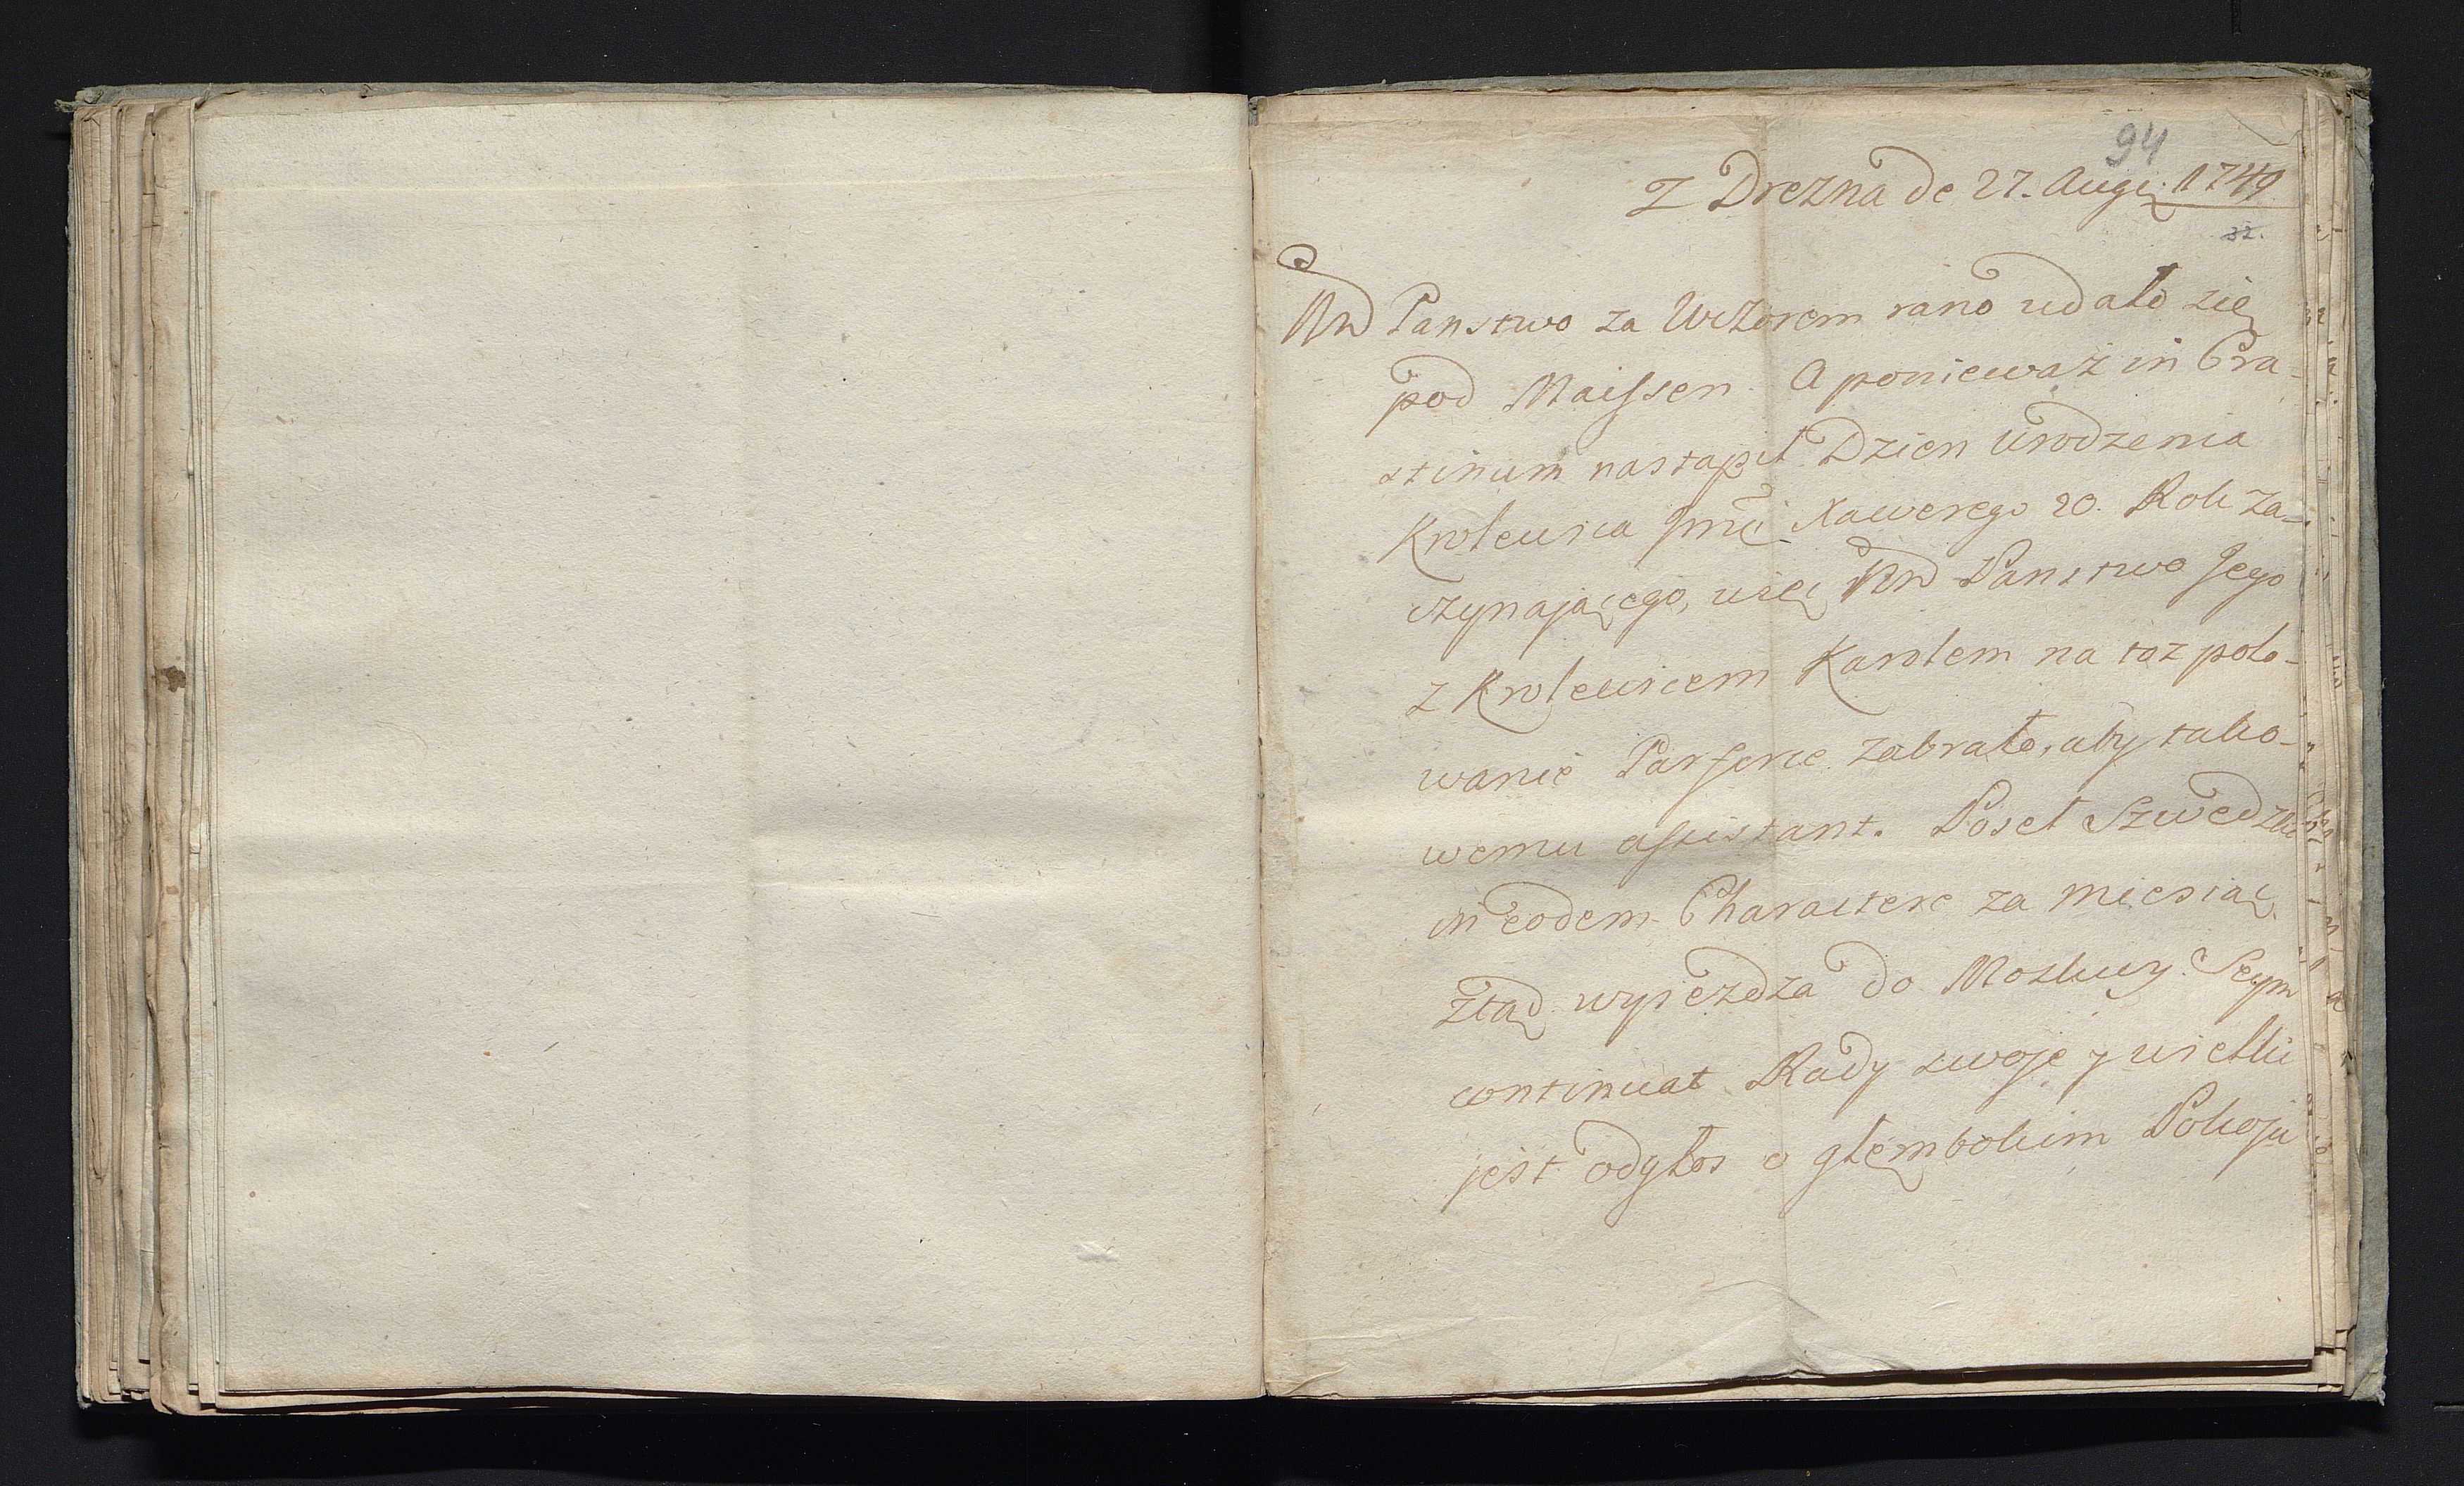 94
Z Drezna de 27. Augi 1749
32.
NN Panstwo za Wtorem rano udało się
pod Maissen. A poniewaz in Cra-
stinum nastąpił Dzien Urodzenia
Krolewica Jmci Xawerego 20. Rok za-
czynającego, więc NN Panstwo Jego
z Krolewicem Karolem na toz polo-
wanie Parforce zabrało, aby tako-
wemu assistant. Poseł Szwedzki
in eodem Charactere za miesiąc
ztąd wyiezdza do Moskwy. Seym
continuat Rady swoje y wielki
jest odgłos o głębokim Pokoju